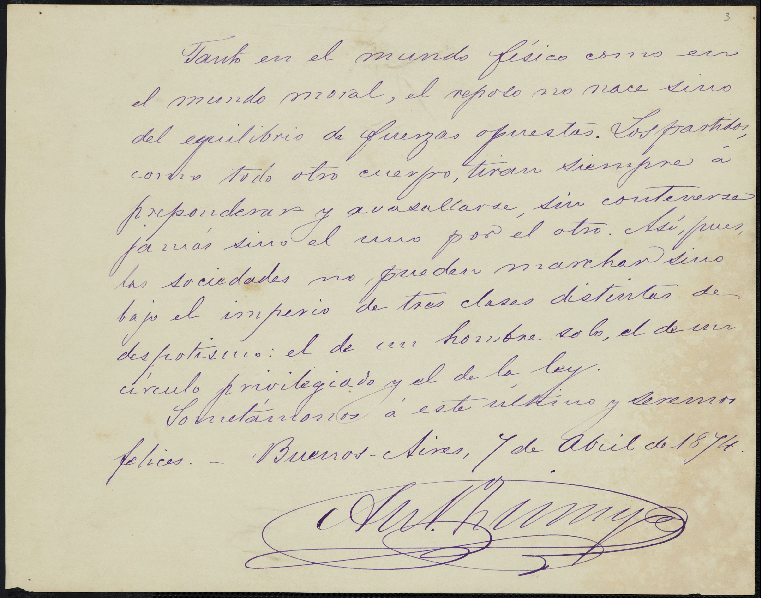 3
Tanto en el mundo físico como en
el mundo moral, el reposo no nace sino
del equilibrio de fuerzas opuestas. Los partidos,
como todo otro cuerpo, tiran siempre á
preponderar y avasallarse, sin contenerse
jamás sino el uno por el otro. Así, pues,
las sociedades no pueden marchar sino
bajo el imperio de tres clases distintas de
despotismo: el de un hombre solo, el de un
círculo privilegiado y el de la ley.
Sometámonos á este último y seremos
felices. — Buenos-Aires, 7 de Abril de 1874.
Ant. Zinny